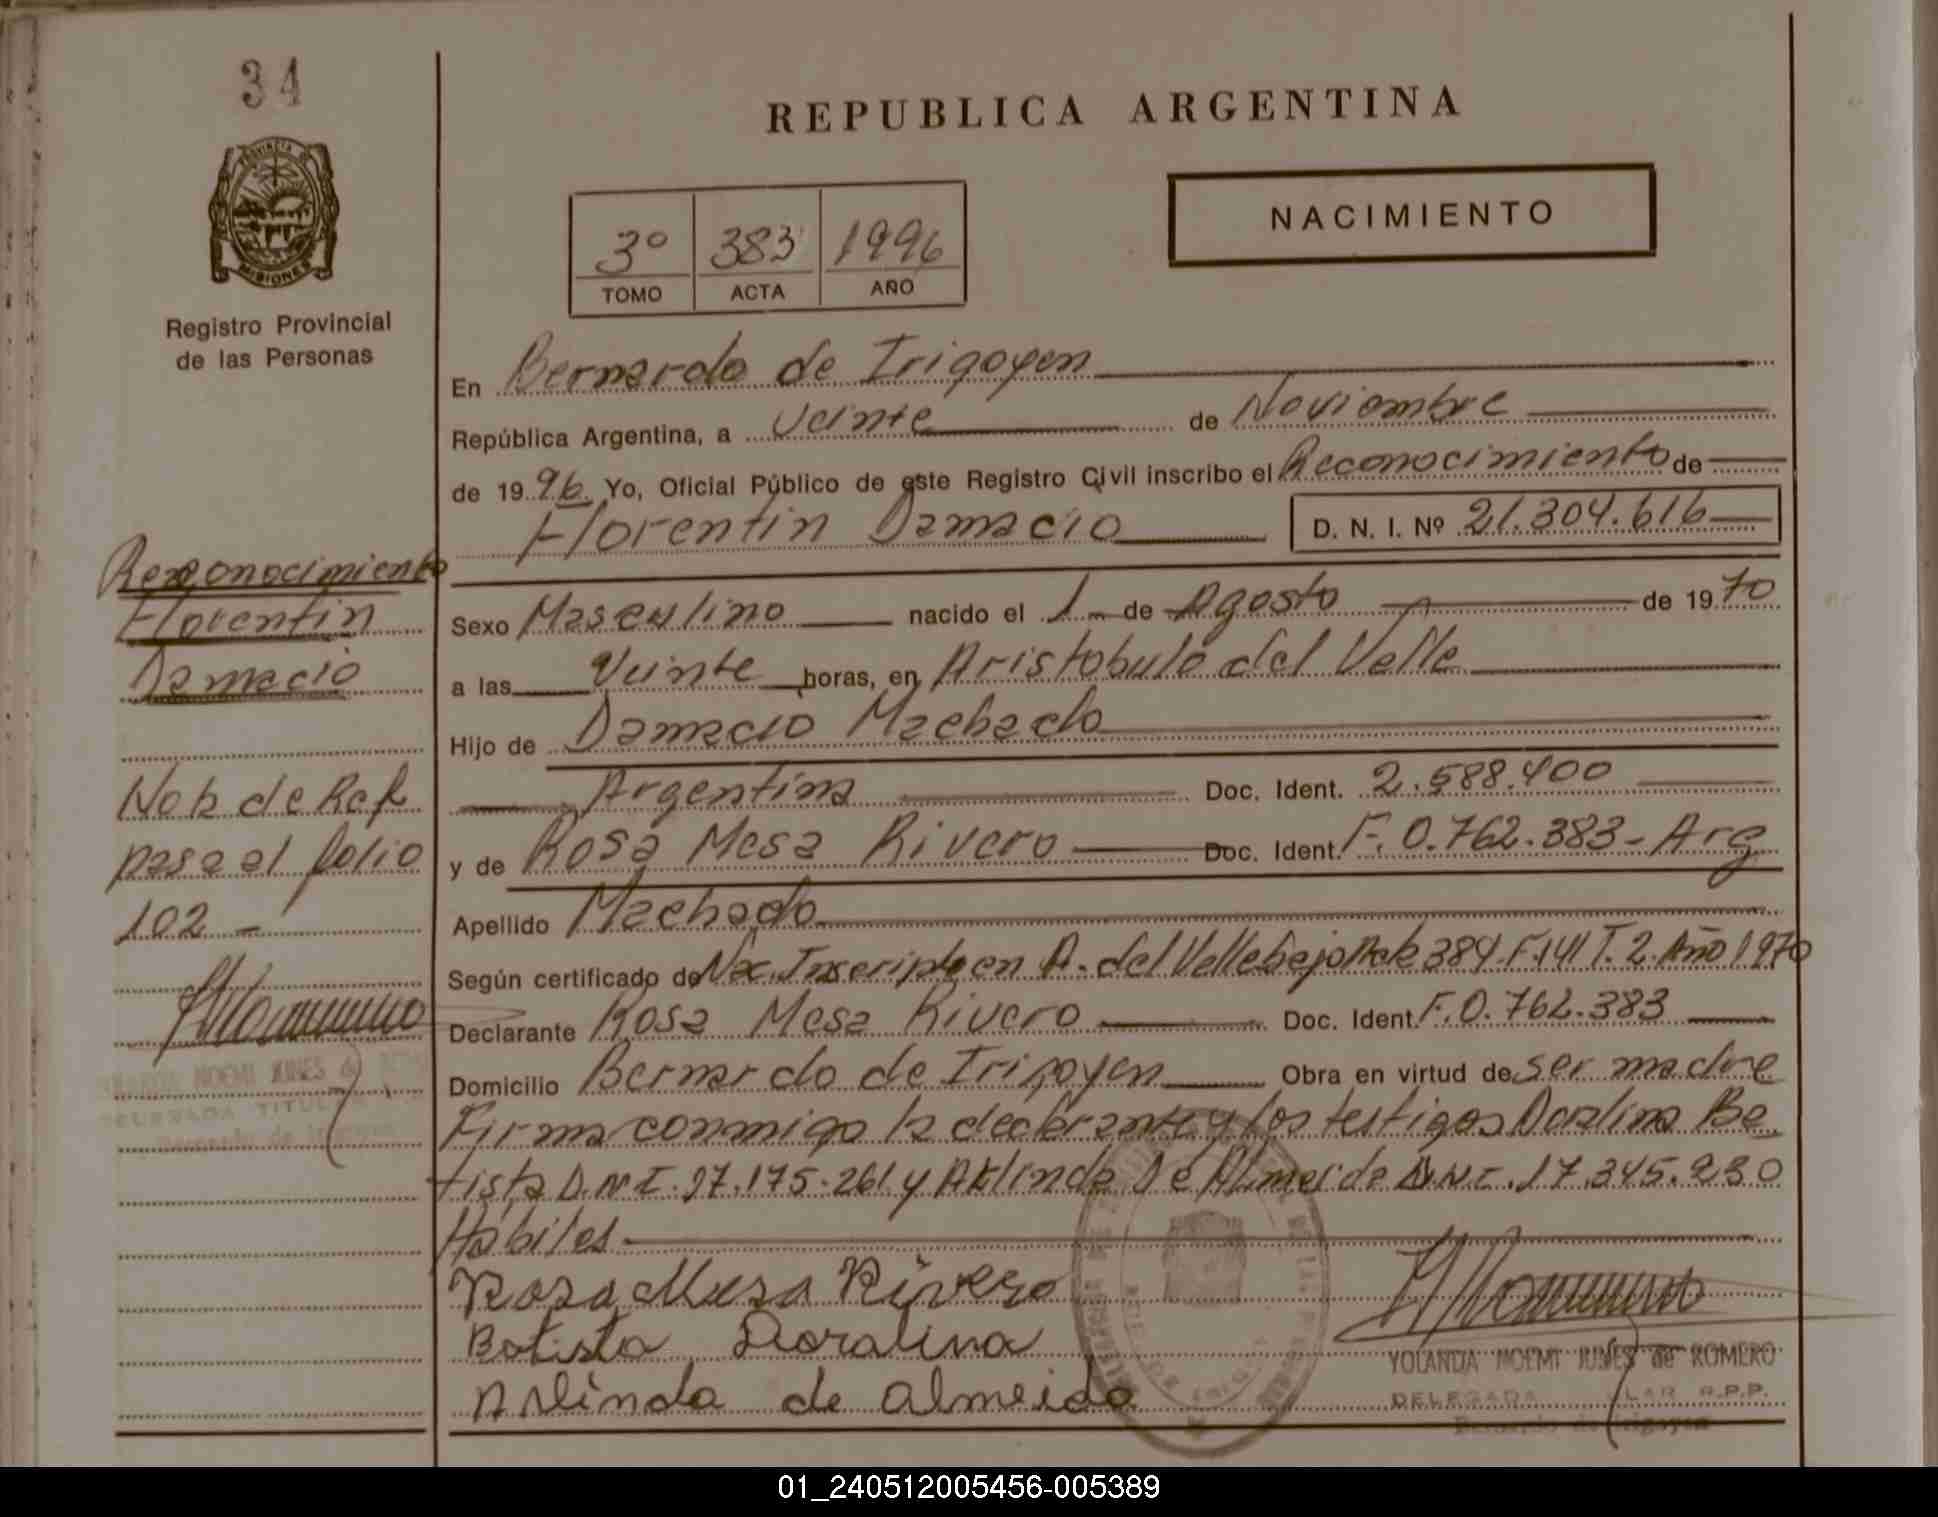 34
PROVINCIA DE
MISIONES
Registro Provincial
de las Personas
REPUBLICA ARGENTINA
NACIMIENTO
3º 383 1996
TOMO ACTA AÑO
En Bernardo de Irigoyen
República Argentina, a Veinte de Noviembre
de 1996 Yo, Oficial Público de este Registro Civil inscribo el Reconocimiento de
Florentin Damacio D. N. I. Nº 21.304.616
Sexo Masculino nacido el 1 de Agosto de 1970
a las Veinte horas, en Aristobulo del Valle
Hijo de Damacio Machado
Argentina Doc. Ident. 2.588.400
y de Rosa Mesa Rivero Doc. Ident. F. 0.762.383 - Arg
Apellido Machado
Según certificado de Nac. Inscripto en A. del Valle bajo Acta 384 F. 141 T. 2 Año 1970
Declarante Rosa Mesa Rivero Doc. Ident. F. 0.762.383
Domicilio Bernardo de Irigoyen Obra en virtud de ser madre
Firma conmigo la declarante y los testigos Doralina Ba
tista D.N.I. 17.175.261 y Arlinda De Almeida D.N.I. 17.345.230
Hábiles
Rosa Mesa Rivero
Batista Doralina
Arlinda de Almeida
YOLANDA NOEMI JUNES de ROMERO
DELEGADA TITULAR R.P.P.
Bernardo de Irigoyen
Reconocimiento
Florentin
Damacio
Nota de Ref
pasa al folio
102 -
YOLANDA NOEMI JUNES de
DELEGADA TITULAR
Bernardo de Irigoyen
01_240512005456-005389